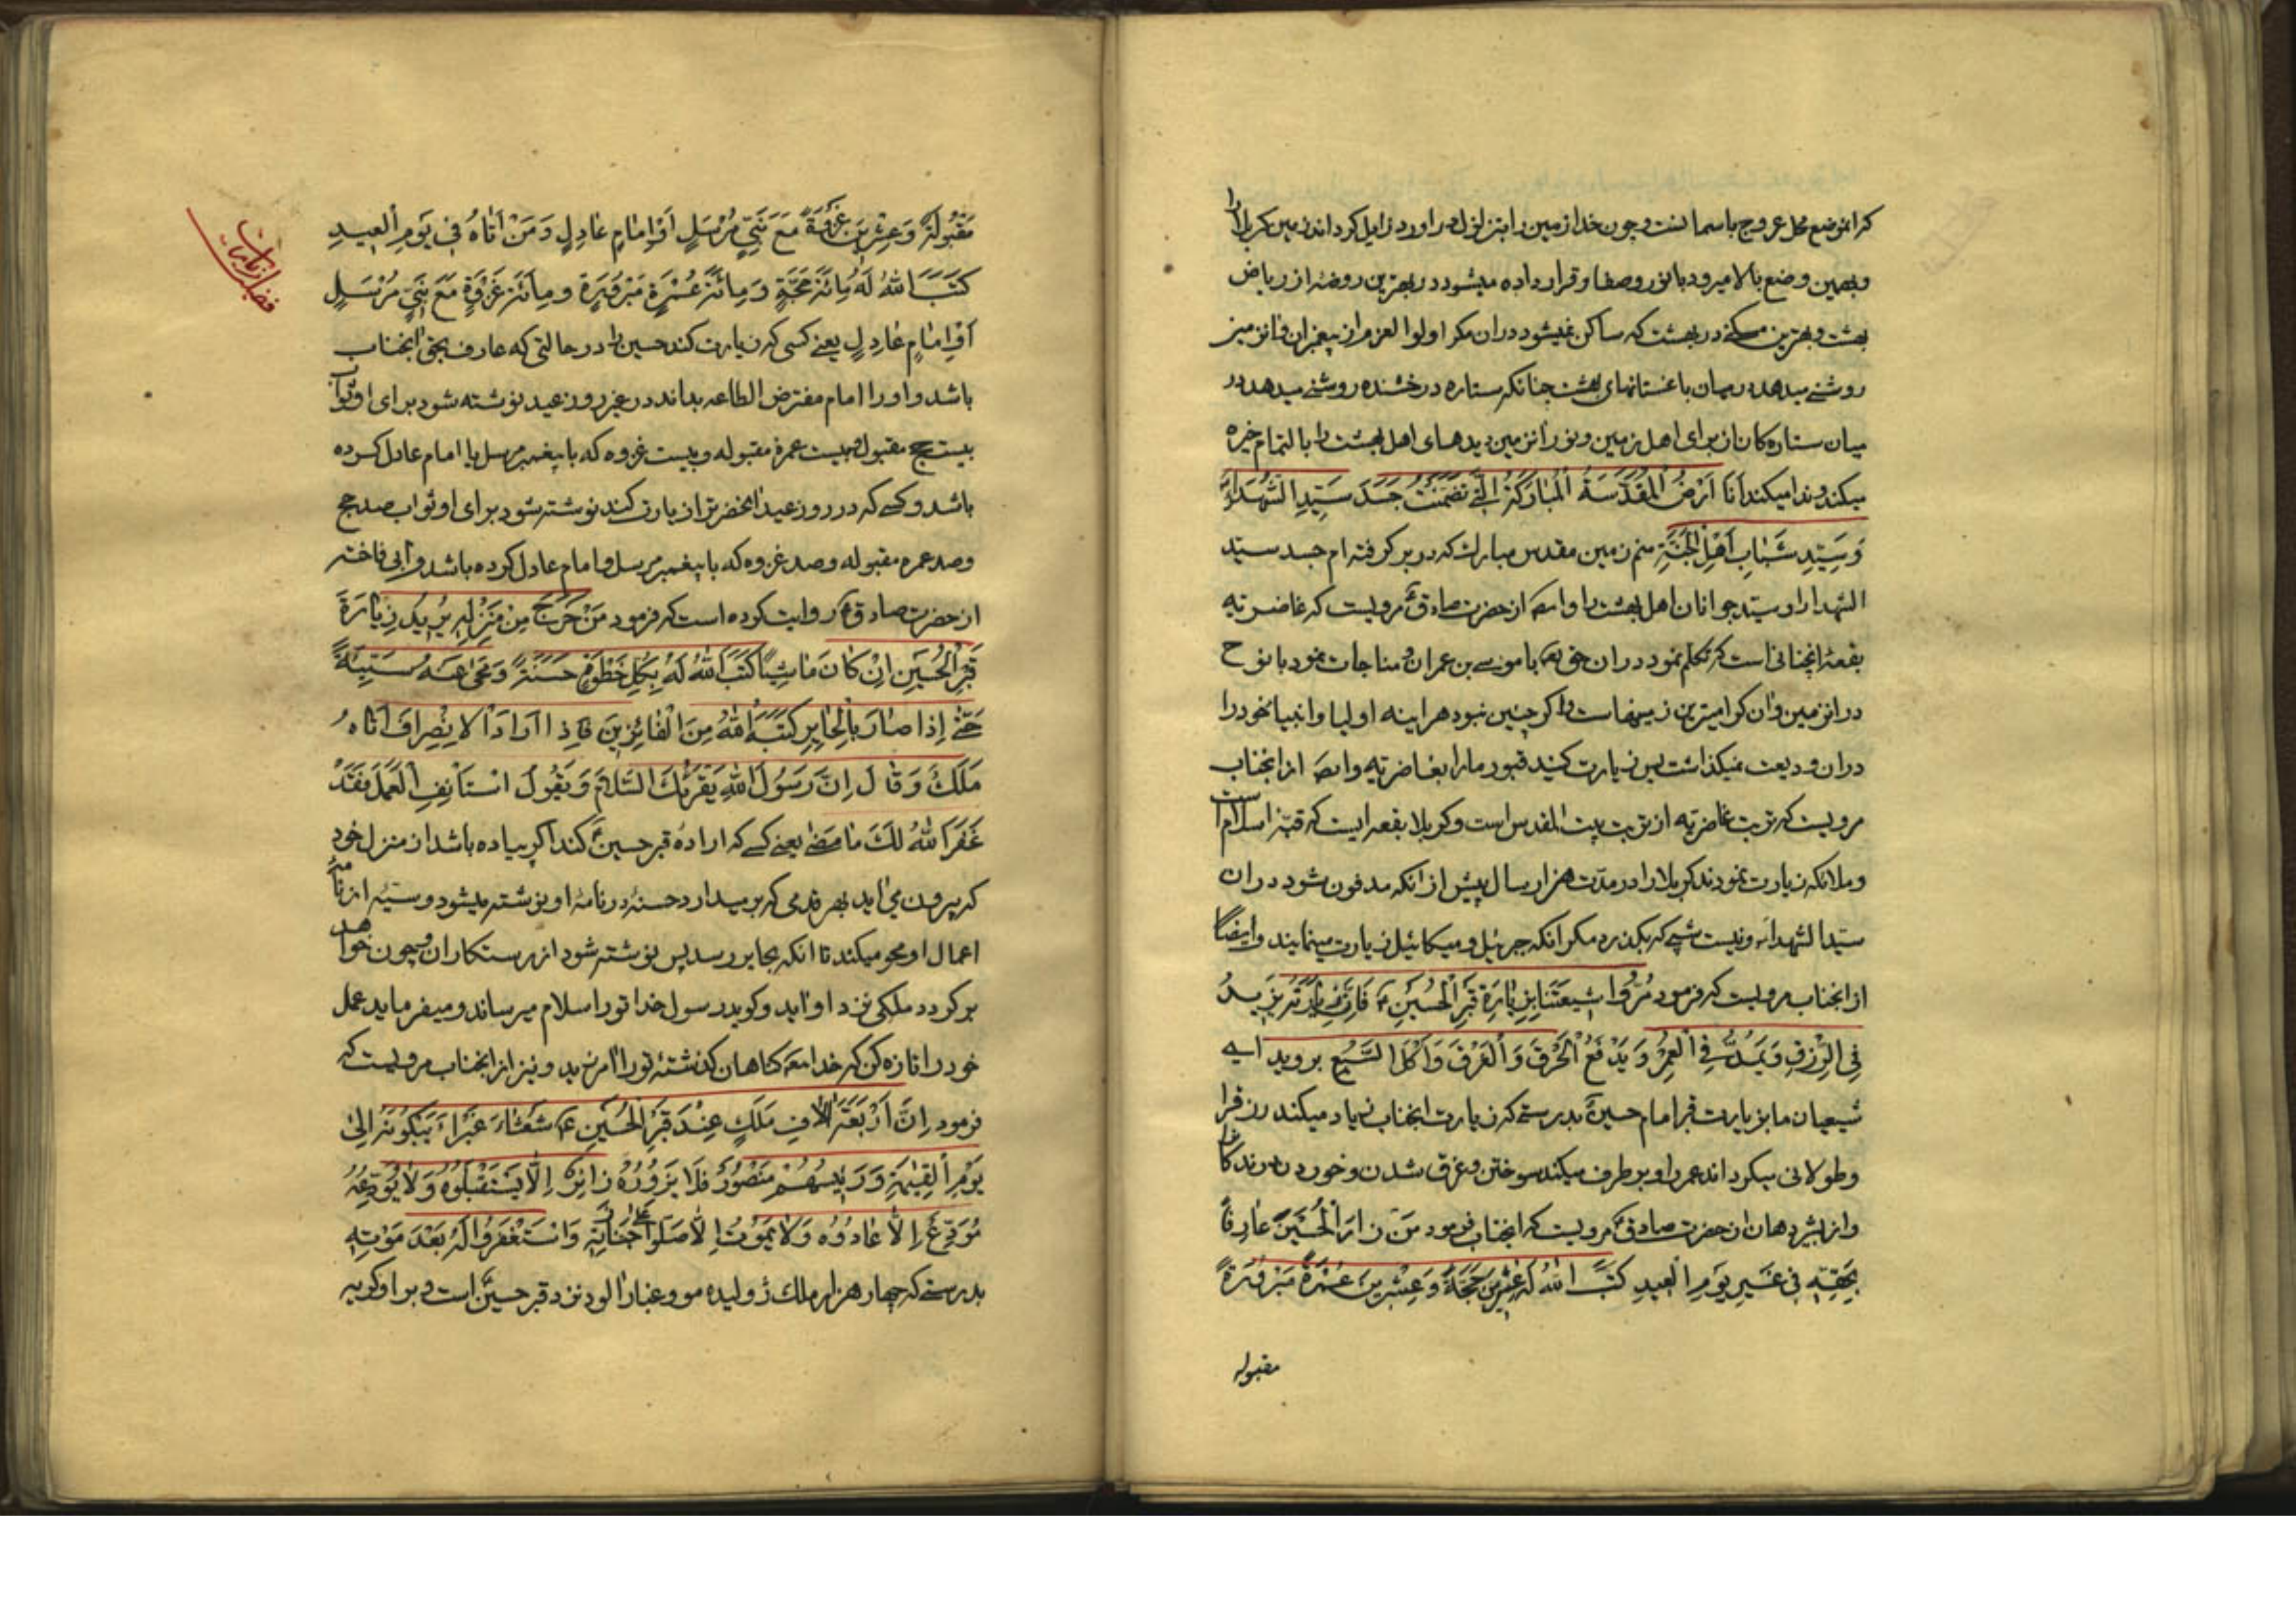 که انموضع محل عروج باسمانست و چون خدا زمین را بتزلزل دراورد زایل کرداند زمین کربلا را
وبهمین وضع بالا میرود با نور وصفا و قرار داده میشود در بهترین روضهٔ از ریاض
بهشت و بهترین مسکنی در بهشت که ساکن نمیشود دران مکر اولوا العزم از پیغمبران وانزمین
روشنی میدهد درمیان باغستانهای بهشت چنانکه ستاره درخشنده روشنی میدهد در
میان ستاره کان از برای اهل زمین و نور انزمین دیدهای اهل بهشت را بالتمام خیره
میکند و ندا میکند اَنَا اَرْضُ الْمُقَدَّسَةُ الْمُبٰارَكَةُ الَّتِى تَضَمَّنَتْ جَسَدَ سَيِّدِ الشُّهَدٰاءِ
وَ سَيِّدِ شَبٰابِ اَهْلِ الْجَنَّةِ منم زمین مقدس مبارك که در بر گرفته ام جسد سیّد
الشهدا را و سیّد جوانان اهل بهشت را وایضا از حضرت صادق ع مرویست که غاضریّه
بقعهٔ انچنانی است که تکلم نمود دران حق تعا با موسی بن عمران و مناجات نمود با نوح
در انزمین وان کرامیترین زمینهاست و اکر چنین نبود هراینه اولیا و انبیا خود را
دران ودیعت نمیکذاشت پس زیارت کنید قبور مارا بغاضریّه وایضا ازانجناب
مرویست که تربت غاضریّه از تربت بیت المقدس است و کربلا بقعه ایست که قبّهٔ اسلام است
وملائکه زیارت نمودند کربلا را در مدّت هزار سال پیش از انکه مدفون شود دران
سیّد الشهداء و نیست شبی که بکذرد مکر انکه جبرئیل و میکائیل زیارت مینمایند وایضا
ازانجناب مرویست که فرمود مُرُوا شِيعَتَنٰا بِزِيٰارَةِ قَبْرِ الْحُسَيْنِ ع فَاِنَّ زِيٰارَتَهُ يَزِيدُ
فِى الرِّزْقِ وَيَمُدُّ فِى الْعُمْرِ وَ يَدْفَعُ الْحَرْقَ وَ الْغَرْقَ وَ اَكْلَ السَّبُعِ بروید ای
شیعیان ما بزیارت قبر امام حسین ع بدرستی که زیارت انجناب زیاد میکند رزق را
وطولانی میکرداند عمر را و برطرف میکند سوختن و غرق شدن و خوردن درندکان را
واز بشیر دهان از حضرت صادق ع مرویست که انجناب فرمود مَنْ زٰارَ الْحُسَيْنَ عٰارِفاً
بِحَقِّهِ فِى غَيْرِ يَوْمِ الْعِيدِ كَتَبَ اللهُ لَهُ عِشْرِينَ حَجَّةً وَ عِشْرِينَ عُمْرَةً مَبْرُورَةً
مقبوله
مَقْبُولَةً وَ عِشْرِينَ غَزْوَةً مَعَ نَبِىٍّ مُرْسَلٍ اَوْ اِمٰامٍ عٰادِلٍ وَمَنْ اَتٰاهُ فِى يَوْمِ الْعِيدِ
كَتَبَ اللهُ لَهُ مِائَةَ حَجَّةٍ وَ مِائَةَ عُمْرَةٍ مَبْرُورَةٍ و مِائَةَ غَزْوَةٍ مَعَ نَبِىٍّ مُرْسَلٍ
اَوْ اِمٰامٍ عٰادِلٍ یعنی کسی که زیارت کند حسین را در حالتی که عارف بحق انجناب
باشد و اورا امام مفترض الطاعه بداند در غیر روز عید نوشته شود برای او ثواب
بیست حج مقبول و بیست عمرهٔ مقبوله و بیست غزوه که با پیغمبر مرسل یا امام عادل کرده
باشد و کسی که در روز عید انحضرترا زیارت کند نوشته شود برای او ثواب صد حج
وصد عمره مقبوله وصد غزوه که با پیغمبر مرسل و امام عادل کرده باشد وابی فاخته
از حضرت صادق ع روایت کرده است که فرمود مَنْ خَرَجَ مِنْ مَنْزِلِهِ يُرِيدُ زِيٰارَةَ
قَبْرِ الْحُسَيْنِ اِنْ كٰانَ مٰاشِيًا كَتَبَ اللهُ لَهُ بِكُلِّ خَطْوَةٍ حَسَنَةً وَ مَحٰى عَنْهُ سَيِّئَةً
حَتّٰى اِذٰا صٰارَ بِالْحٰايِرِ كَتَبَهُ اللهُ مِنَ الْفٰائِزِينَ فَاِذٰا اَرٰادَ الْاِنْصِرٰافَ اَتٰاهُ
مَلَكٌ وَ قٰالَ اِنَّ رَسُولَ اللهِ يَقْرَئُكَ السَّلٰامَ وَ يَقُولُ اسْتَأْنِفِ الْعَمَلَ فَقَدْ
غَفَرَ اللهُ لَكَ مٰا مَضٰى یعنی کسی که ارادهٔ قبر حسین ع کند اکر پیاده باشد از منزل خود
که بیرون می اید بهر قدمی که بر میدارد حسنهٔ در نامهٔ او نوشته میشود و سیّئهٔ از نامهٔ
اعمال او محو میکند تا انکه بحایر رسد پس نوشته شود از رستکاران و چون خواهد
برکردد ملکی نزد او اید و کوید رسول خدا تورا سلام میرساند و میفرماید عمل
خود را تازه کن که خدا همه کناهان کذشتهٔ تورا امرزید و نیز از انجناب مرویست که
فرمود اِنَّ اَرْبَعَةَ اٰلٰافِ مَلَكٍ عِنْدَ قَبْرِ الْحُسَيْنِ ع شَعْثٰاءَ غَبْرٰاءَ يَبْكُونَهُ اِلٰى
يَوْمِ الْقِيٰمَةِ وَ رَئِيسُهُمْ مَنْصُورٌ فَلٰا يَزُورُهُ زٰائِرٌ اِلّٰا يَسْتَقْبِلُوهُ وَ لٰا يُوَدِّعُهُ
مُوَدِّعٌ اِلّٰا عٰادُوهُ وَ لٰا يَمُوتُ اِلّٰا صَلَّوْا عَلٰى جَنٰازَتِهِ وَ اسْتَغْفَرُوا لَهُ بَعْدَ مَوْتِهِ
بدرستی که چهار هزار ملك ژولیده مو و غبار الود نزد قبر حسین ع است و بر او کویه